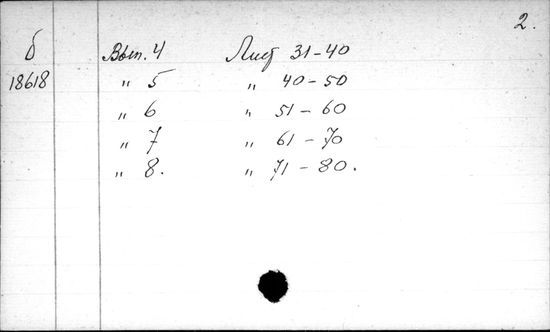 2.
б Вып. 4 Лист 31-40
18618 " 5 " 40-50
" 6 " 51-60
" 7 " 61-70
" 8. " 71-80.